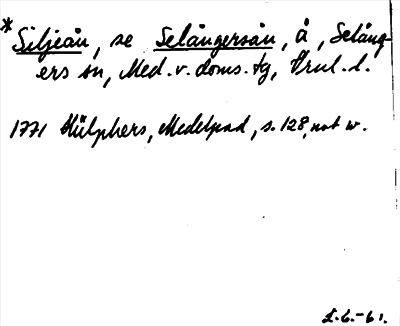 * Siljeån, se Selångersån, å, Selång-
ers sn, Med. v. doms. tg, Vnl. l.
1771 Hülphers, Medelpad, s. 128, not w.
L.G.-61.